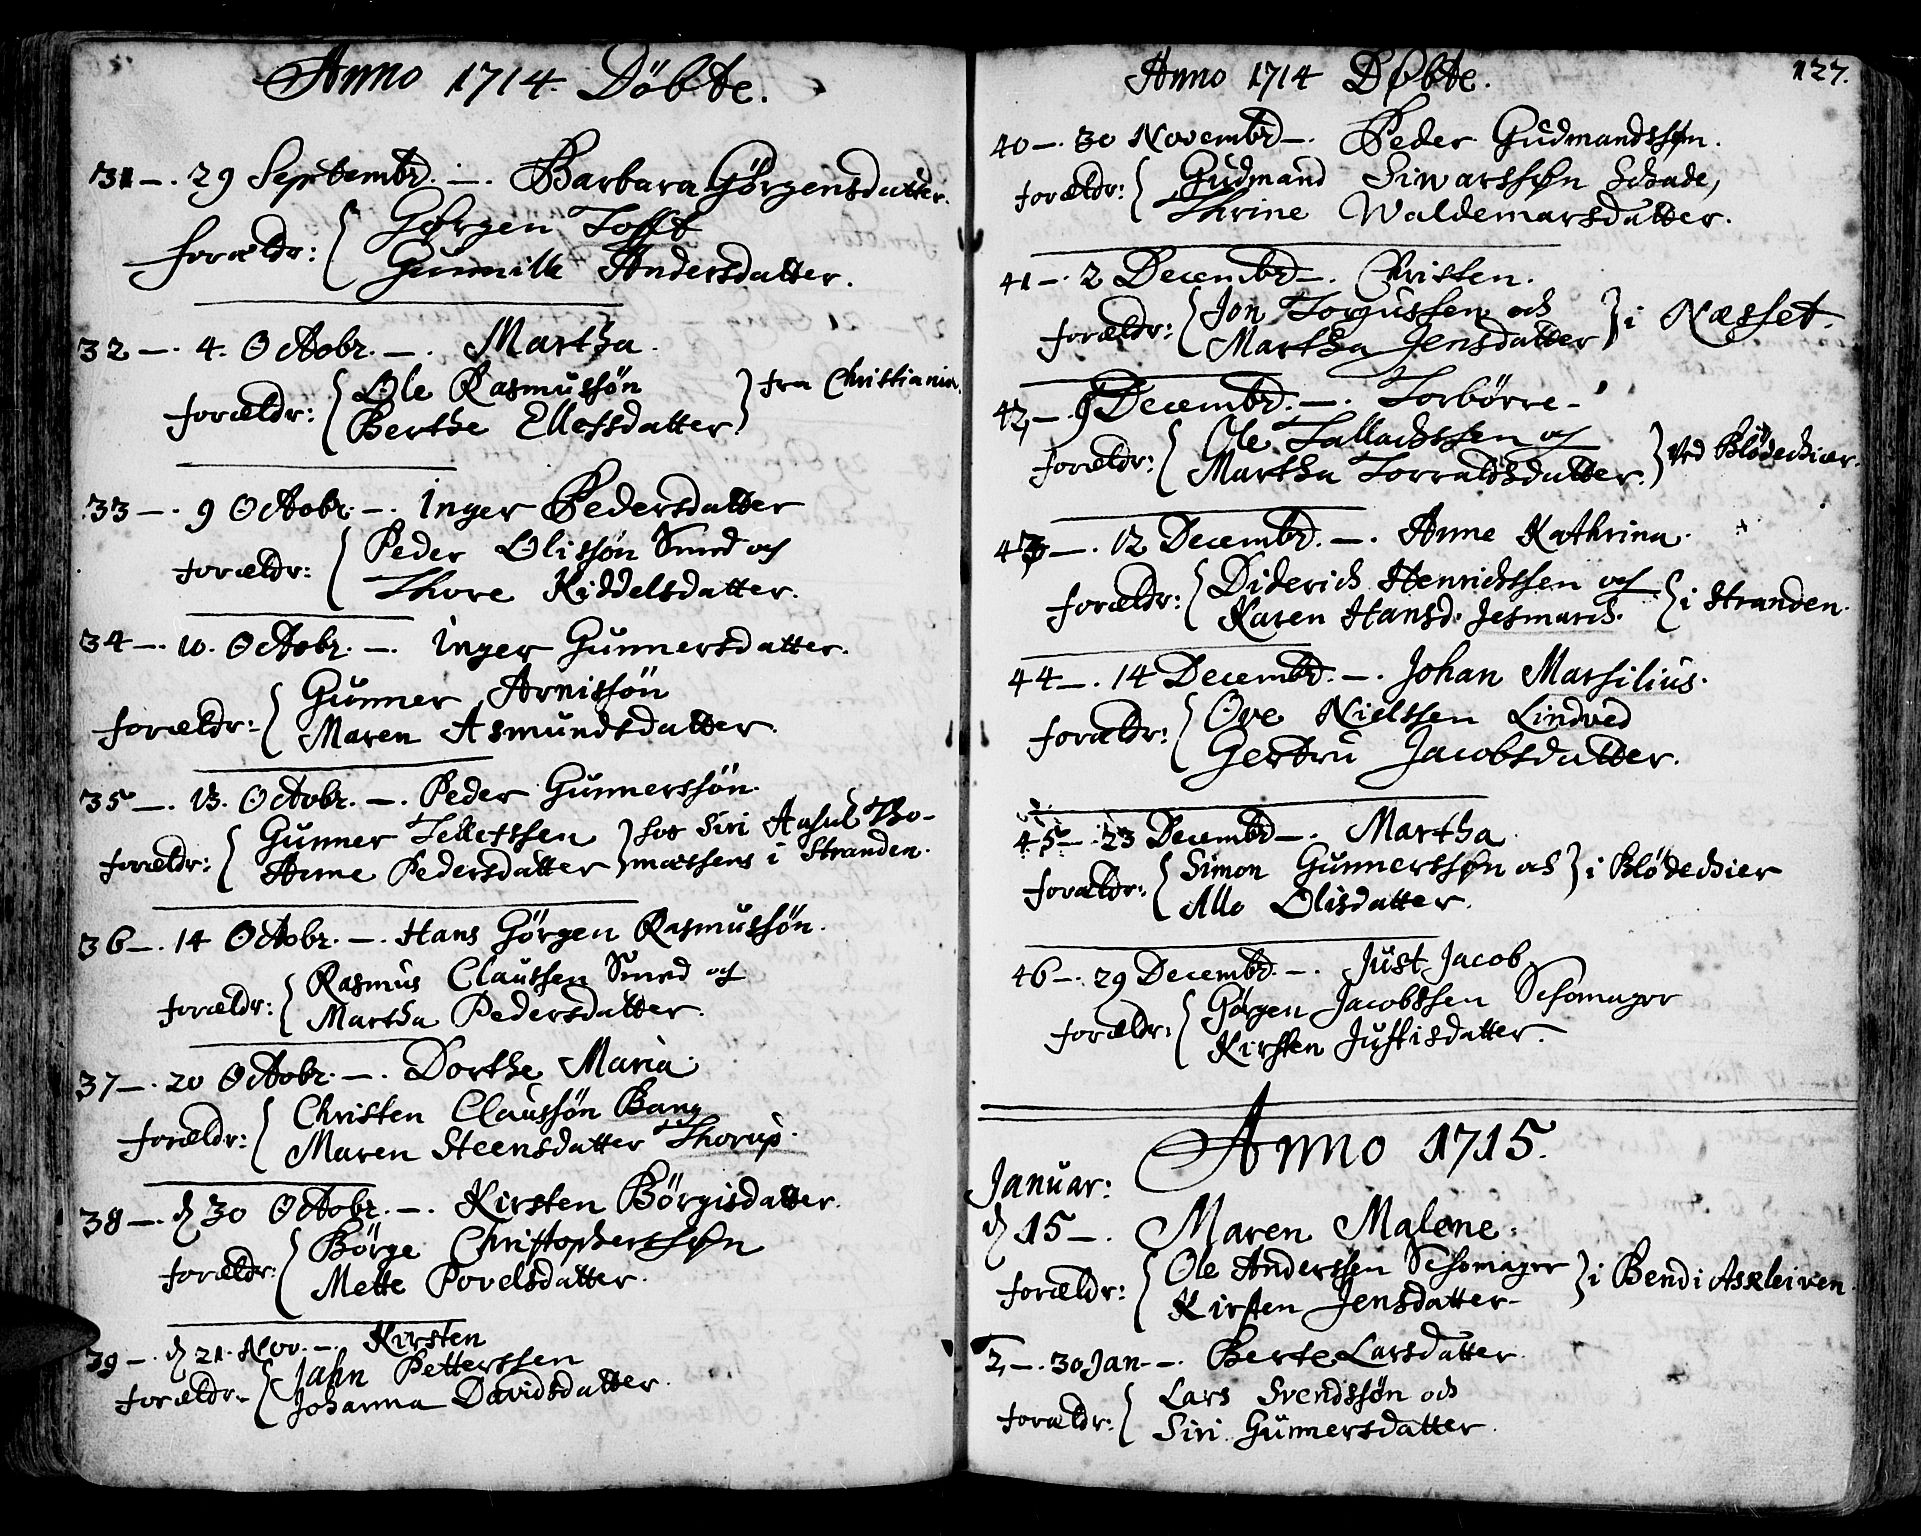 Anno 1714. Döbte.
31 —. 29 Septembr. —. Barbara Gørgensdatter.
forældr: { Gørgen Tofft
Gunnille Andersdatter.
32 —. 4. Octobr. —. Martha.
forældr: { Ole Rasmussøn } fra Christiania.
Berthe Ellefsdatter
33 —. 9 Octobr. —. Inger Pedersdatter
forældr: { Peder Olissøn Smed och
Thore Kiddelsdatter.
34 —. 10. Octobr. —. Inger Gunnersdatter.
forældr: { Gunner Arnissön
Maren Asmundsdatter.
35 —. 13. Octobr. —. Peder Gunnerssön.
forældr: { Gunner Tellefssen } hos Siri Aasul Tho-
Anne Pedersdatter } mæssens i Stranden.
36 —. 14 Octobr. —. Hans Görgen Rasmussön.
forældr: { Rasmus Claussen Smed og
Martha Pedersdatter.
37 —. 20 Octobr. —. Dorthe Maria.
forældr: { Christen Claussön Bang
Maren Steensdatter Thorup.
38 —. d 30 Octobr. —. Kirsten Börgisdatter.
forældr: { Börge Christopherssøn
Mette Povelsdatter.
39 —. d 21. Nov. —. Kirsten
forældr. { Jahn Petterssen
Johanna Davidsdatter.
127.
Anno 1714 Döbte.
40 —. 30 Novembr —. Peder Gudmandssøn.
forældr: { Gudmand Siwarssøn
Thrine Waldemarsdatter.
41 —. 2 Decembr —. Christen.
forældr: { Jon Torgussen och } i Næsset.
Martha Jensdatter
42, —. 9 Decembr. —. Torbörre —
forældr: { Ole Tallachssen og } Ved Blödechiær.
Martha Torraldsdatter.
43 —. 12 Decembr. —. Anne Kathrina.
forældr: { Diderich Henrichssen og } i Stranden.
Karen Hansd. Jesmarch.
44 —. 14 Decembr. —. Johan Marsilius.
forældr: { Ove Nielssen Lindved
Gertru Jacobsdatter.
45 —. 23 Decembr —. Martha.
forældr: { Simon Gunnerssøn och } i Blödechier
Allo Olisdatter.
46 —. 29 Decembr. —. Just Jacob
forældr: { Gørgen Jacobssen Schomager
Kirsten Justisdatter.
Anno 1715.
Januar:
d 15 —. Maren Malene.
forældr: { Ole Anderssen Schomager } i Bendi Askleiven.
Kirsten Jensdatter —
2, —. 30 Jan —. Berte Larsdatter.
forældr: { Lars Svendssön och
Siri Gunnersdatter.